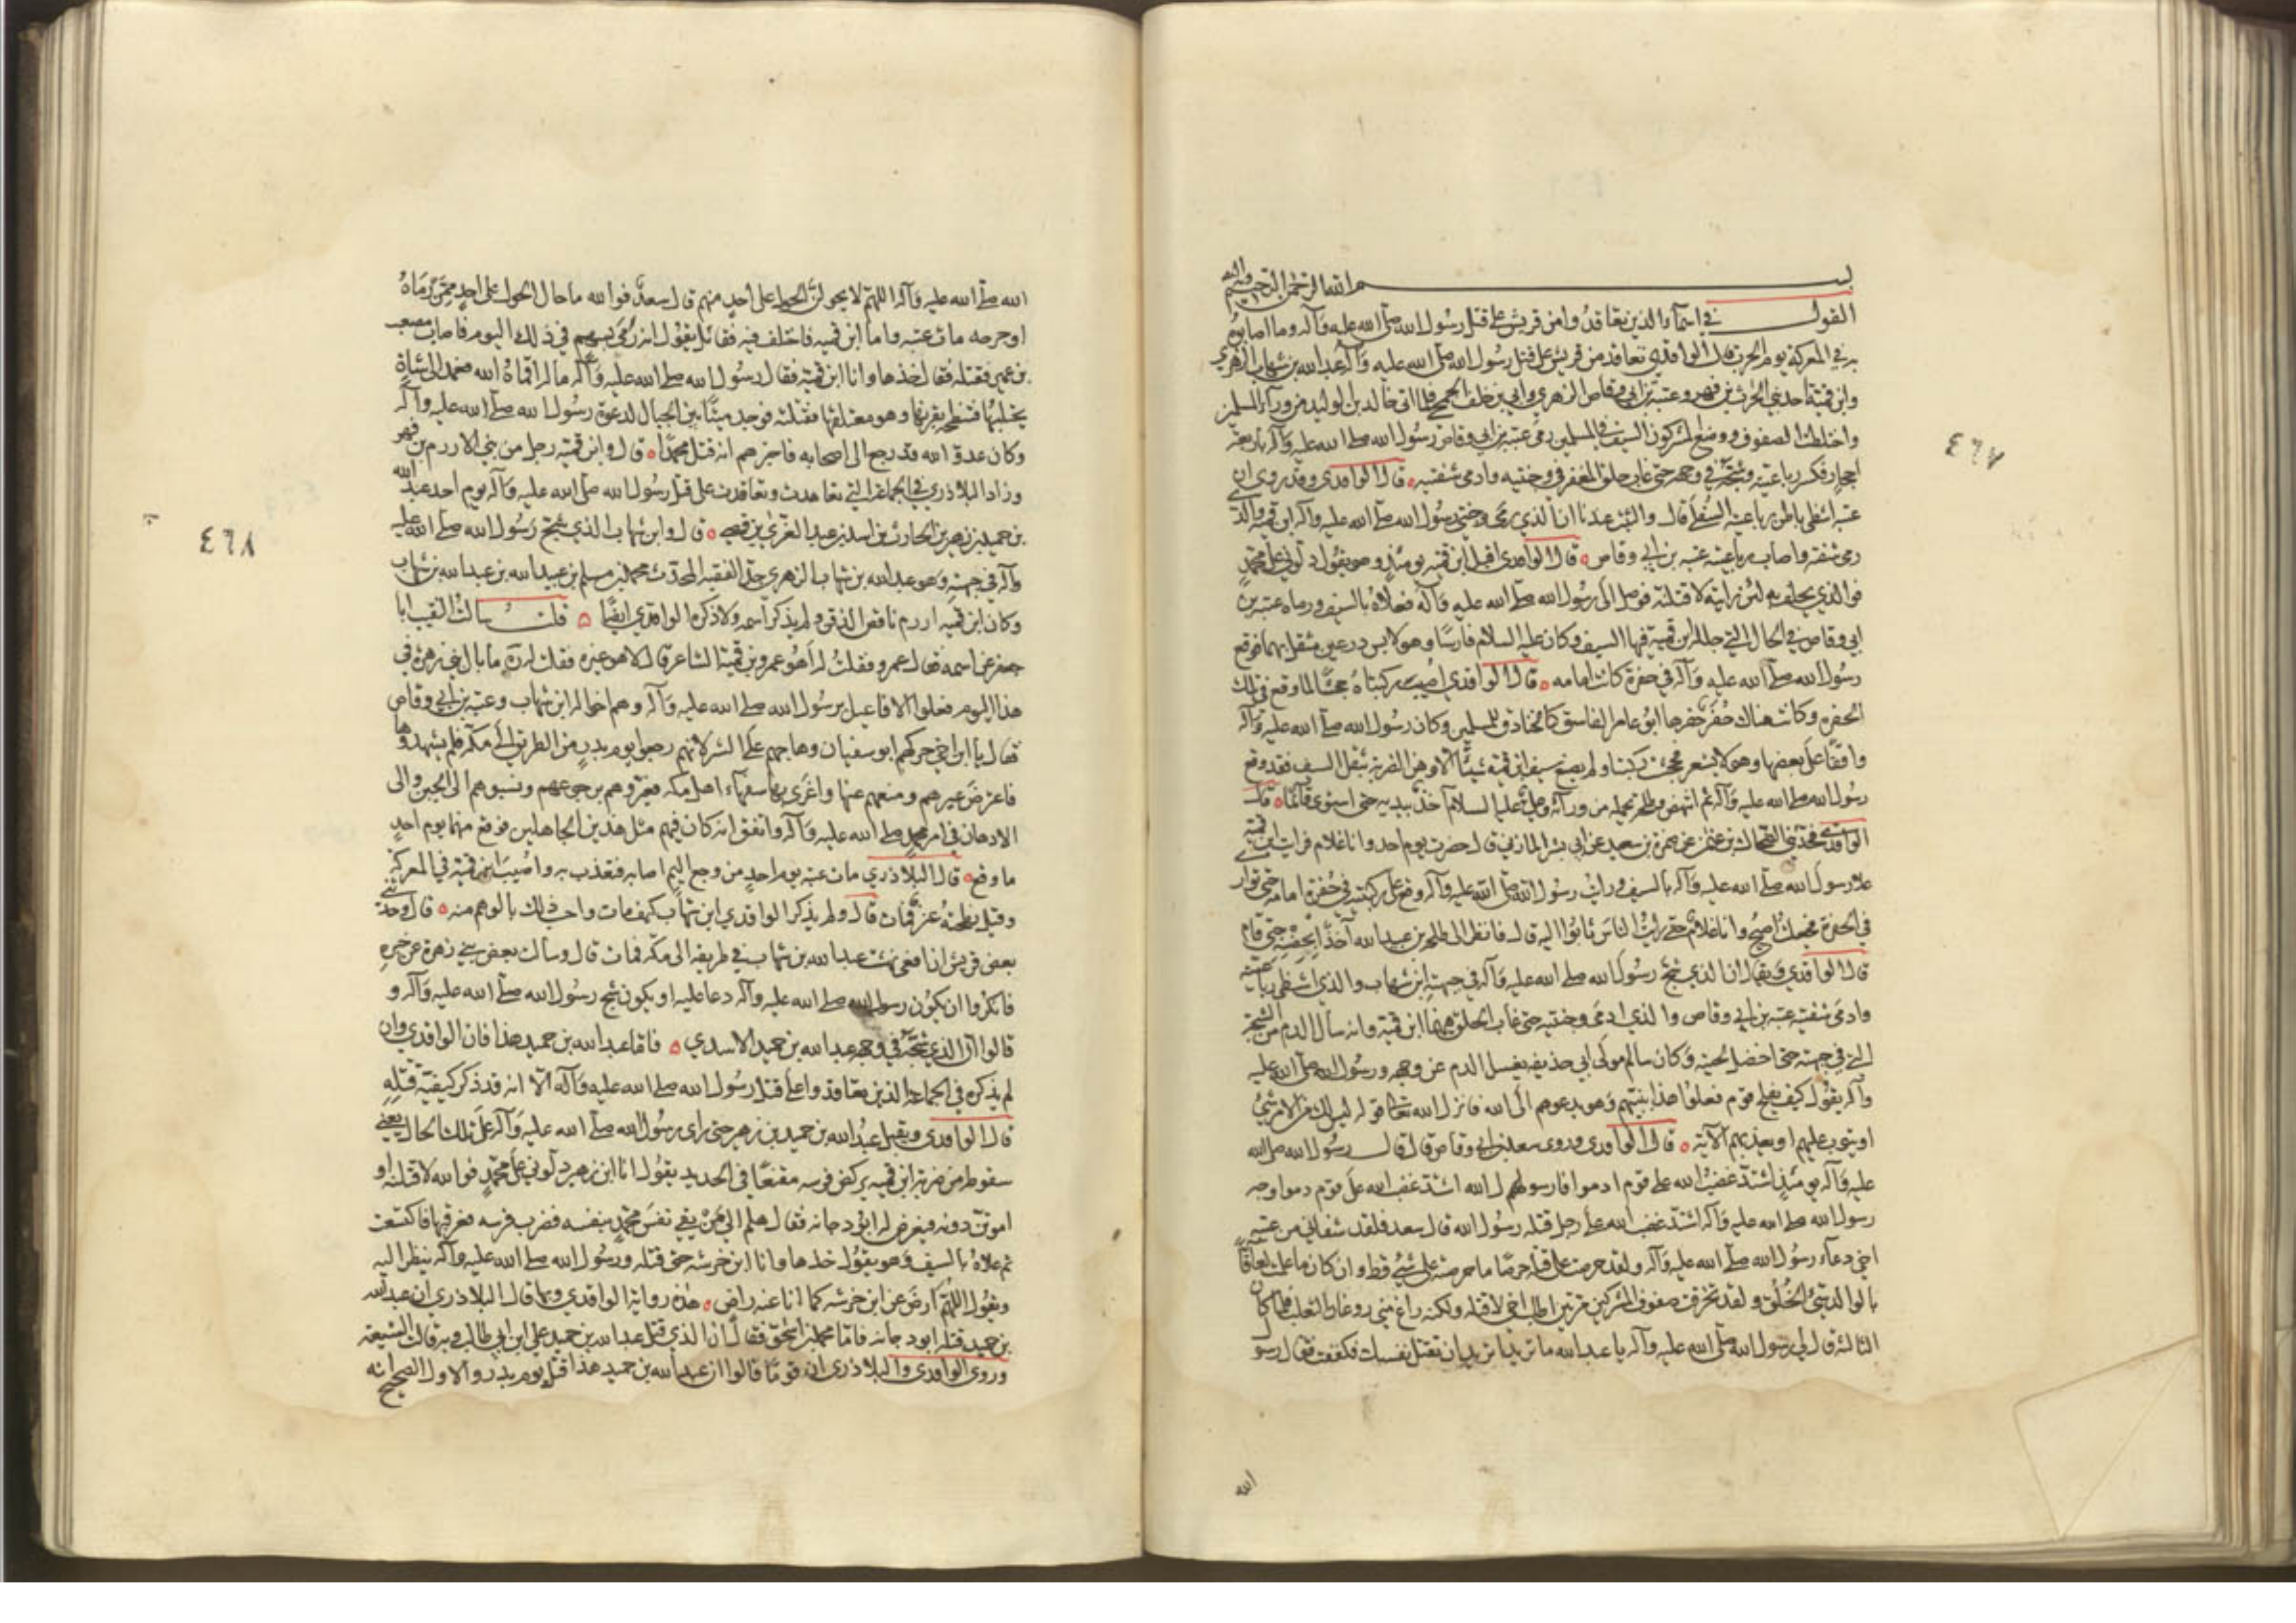 بسم الله الرحمن الرحيم
القول في اسماء الذين تعاقدوا من قريش على قتل رسول الله صلى الله عليه وآله وما اصابوه
به في المعركة يوم الحرب قال الواقدي تعاقد من قريش على قتل رسول الله صلى الله عليه وآله عبد الله بن شهاب الزهري
وابن قميئة احد بني الحرث بن فهر وعتبة بن ابي وقاص الزهري وابي بن خلف الجمحي فلما اتى خالد بن الوليد من وراء المسلمين
واختلطت الصفوف ووضع المشركون السيف في المسلمين رمى عتبة بن ابي وقاص رسول الله صلى الله عليه وآله باربعة
احجار فكسر رباعيته وشجه في وجهه حتى غاب حلق المغفر في وجنتيه وادمى شفتيه ٥ قال الواقدي وقد روي ان
عتبة اشظى باطن رباعيته السفلى قال والثبت عندنا ان الذي رمى وجنتي رسول الله صلى الله عليه وآله ابن قميه والذي
رمى شفته واصاب رباعيته عتبة بن ابي وقاص ٥ قال الواقدي اقبل ابن قميه يومئذ وهو يقول دلوني على محمد
فوالذي يحلف به لئن رايته لاقتلنه فوصل الى رسول الله صلى الله عليه وآله فعلاه بالسيف ورماه عتبة بن
ابي وقاص في الحال التي جلله ابن قميه فيها السيف وكان عليه السلام فارسا وهو لابس درعين مثقل بهما فوقع
رسول الله صلى الله عليه وآله في حفرة كانت امامه ٥ قال الواقدي اصيب ركبتاه جحشتا لما وقع في تلك
الحفرة وكانت هناك حفر حفرها ابو عامر الفاسق كالخنادق للمسلمين وكان رسول الله صلى الله عليه وآله
واقفا على بعضها وهو لا يشعر فجحشت ركبتاه ولم يصنع سيف ابن قميه شيئا الا وهن الضربة بثقل السيف فقد وقع
رسول الله صلى الله عليه وآله ثم انتهض وطلحة يحمله من ورائه وعلي عليه السلام آخذ بيديه حتى استوى قائما ٥ قال
الواقدي فحدثني الضحاك بن عثمن عن ضمرة بن سعيد عن ابي بشر المازني قال حضرت يوم احد وانا غلام فرايت ابن قميه
علا رسول الله صلى الله عليه وآله بالسيف ورايت رسول الله صلى الله عليه وآله وقع على ركبتيه في حفرة امامه حتى توارى
في الحفرة فجعلت اصيح وانا غلام حتى رايت الناس ثابوا اليه قال فانظر الى طلحة بن عبيد الله آخذا بحضنه حتى قام
قال الواقدي ويقال ان الذي شج رسول الله صلى الله عليه وآله في جبهته ابن شهاب والذي اشظى رباعيته
وادمى شفتيه عتبة بن ابي وقاص والذي ادمى وجنتيه حتى غاب الحلق فيهما ابن قميه وانه سال الدم من الشجة
التي في جبهته حتى اخضل لحيته وكان سالم مولى ابي حذيفة يغسل الدم عن وجهه ورسول الله صلى الله عليه
وآله يقول كيف يفلح قوم فعلوا هذا بنبيهم وهو يدعوهم الى الله فانزل الله تعالى قوله ليس لك من الامر شيء
او يتوب عليهم او يعذبهم الآية ٥ قال الواقدي وروى سعد بن ابي وقاص قال قال رسول الله صلى الله
عليه وآله يومئذ اشتد غضب الله على قوم ادموا فا رسول الله اشتد غضب الله على قوم دموا وجه
رسول الله صلى الله عليه وآله اشتد غضب الله على رجل قتله رسول الله قال سعد فلقد شفاني من عتبة
اخي دعاء رسول الله صلى الله عليه وآله ولقد حرصت على قتله حرصا ما حرصته على شيء قط وان كان ما علمت لعاقا
بالوالد سيئ الخلق ولقد تخرقت صفوف المشركين مرتين اطلب اخي لاقتله ولكنه راغ مني روغان الثعلب فلما كان
الثالثة قال لي رسول الله صلى الله عليه وآله يا عبد الله ما تريد اتريد ان تقتل نفسك فكففت فقال رسول
الله
٤٦٧
الله صلى الله عليه وآله اللهم لا يحولن الحول على احد منهم قال سعد فوالله ما حال الحول على احد ممن رماه
او جرحه مات عتبة واما ابن قميه فاختلف فيه فقائل يقول انه رمى بسهم في ذلك اليوم فاصاب مصعب
بن عمير فقتله فقال خذها وانا ابن قميه فقال رسول الله صلى الله عليه وآله ماله اقماه الله فعمد الى شاة
يحتلبها فتنطحه بقرنها وهو معتقلها فقتلته فوجد ميتا بين الجبال لدعوة رسول الله صلى الله عليه وآله
وكان عدو الله قد رجع الى اصحابه فاخبرهم انه قتل محمدا ٥ قال وابن قميه رجل من بني الادرم من فهر
وزاد البلاذري في الجماعة التي تعاهدت وتعاقدت على قتل رسول الله صلى الله عليه وآله يوم احد عبد الله
بن حميد بن زهير بن الحارث بن اسد بن عبد العزى بن قصي ٥ قال وابن شهاب الذي شج رسول الله صلى الله عليه
وآله في جبهته وهو عبد الله بن شهاب الزهري جد الفقيه المحدث محمد بن مسلم بن عبيد الله بن عبد الله بن شهاب
وكان ابن قميه ادرم ناقص الذقن ولم يذكر اسمه ولا ذكره الواقدي ايضا ٥ قلت سالت النقيب ابا
جعفر عن اسمه فقال عمرو فقلت له اهو عمرو بن قميئة الشاعر قال لا هو غيره فقلت له ما بال بني زهرة في
هذا اليوم فعلوا الافاعيل برسول الله صلى الله عليه وآله وهم اخواله ابن شهاب وعتبة بن ابي وقاص
فقال يا ابن اخي حركهم ابو سفيان وهاجهم على الشر لانهم رجعوا يوم بدر من الطريق الى مكة فلم يشهدوها
فاعترض عيرهم ومنعهم عنها واغرى بها سفهاء اهل مكة فعيروهم برجوعهم ونسبوهم الى الجبن والى
الادهان في امر محمد صلى الله عليه وآله واتفق انه كان فيهم مثل هذين الجاهلين فوقع منهما يوم احد
ما وقع ٥ قال البلاذري مات عتبة يوم احد من وجع اليم اصابه فتعذب به واصيب ابن قميه في المعركة
وقيل نطحته عنز فمات قال ولم يذكر الواقدي ابن شهاب كيف مات واحسب ذلك بالوهم منه ٥ قال وحدثني
بعض قريش ان افعى نهشت عبد الله بن شهاب في طريقه الى مكة فمات قال وسالت بعض بني زهرة عن خبره
فانكروا ان يكون رسول الله صلى الله عليه وآله دعا عليه او يكون شج رسول الله صلى الله عليه وآله و
قالوا ان الذي شجه في وجهه عبد الله بن حميد الاسدي ٥ فاما عبد الله بن حميد هذا فان الواقدي وان
لم يذكره في الجماعة الذين تعاقدوا على قتل رسول الله صلى الله عليه وآله الا انه قد ذكر كيفية قتله
قال الواقدي ويقبل عبد الله بن حميد بن زهير حتى راى رسول الله صلى الله عليه وآله على تلك الحال يعني
سقوطه من ضربة ابن قميه يركض فرسه مقنعا في الحديد يقول انا ابن زهير دلوني على محمد فوالله لاقتلنه او
اموتن دونه فيعرض له ابو دجانه فقال هلم الى من يقي نفس محمد بنفسه فضرب فرسه فعرقبها فاكتسعت
ثم علاه بالسيف وهو يقول خذها وانا ابن خرشه حتى قتله ورسول الله صلى الله عليه وآله ينظر اليه
ويقول اللهم ارض عن ابن خرشه كما انا عنه راض ٥ هذه رواية الواقدي وبها قال البلاذري ان عبد الله
بن حميد قتله ابو دجانه فاما محمد بن اسحق فقال ان الذي قتل عبد الله بن حميد علي ابن ابي طالب وبه قالت الشيعة
وروى الواقدي والبلاذري ان قوما قالوا ان عبد الله بن حميد هذا قتل يوم بدر والاول الصحيح انه
٤٦٨